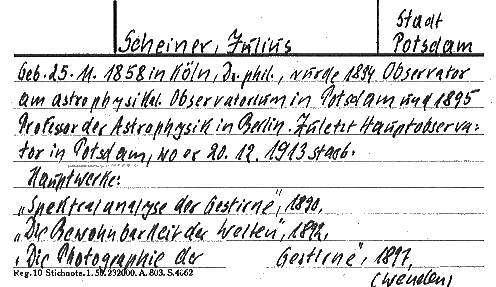 Stadt
Scheiner, Julius Potsdam
Geb. 25. 11. 1858 in Köln, Dr. phil., wurde 1894 Observator
am astrophysikal. Observatorium in Potsdam und 1895
Professor der Astrophysik in Berlin. Zuletzt Hauptobserva-
tor in Potsdam, wo er 20. 12. 1913 starb.
Hauptwerke:
„Spektralanalyse der Gestirne", 1890,
„Die Bewohnbarkeit der Welten", 1892,
„Die Photographie der Gestirne", 1897,
Reg. 10 Stichnote. 1. 50. 232000. A. 803. S. 4662
(wenden)